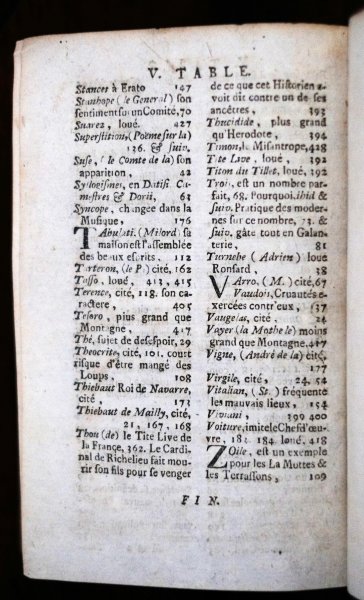 V. TABLE.
Stances à Erato 147
Stanhope (le General) son
sentiment sur un Comité, 70
Suarez, loué. 427
Superstition, (Poëme sur la)
136. & suiv.
Suse, (le Comte de la) son
apparition, 42
Syllogismes, en Datisi. Ca-
mestres & Dorii, 63
Syncope, changée dans la
Musique 176
Tabulati. (Milord) sa
maison est l'assemblée
des beaux esrits. 112
Tarteron, (le P.) cité, 162
Tasso, loué, 413, 415
Terence, cité, 118. son ca-
ractere, 405
Tesoro, plus grand que
Montagne, 417
Thé, sujet de desespoir, 29
Theocrite, cité, 101. court
risque d'être mangé des
Loups, 108
Thiebaut Roi de Navarre,
cité, 173
Thiebaut de Mailly, cité,
21, 167, 168
Thou (de) le Tite Live de
la France, 362. Le Cardi-
nal de Richelieu fait mou-
rir son fils pour se venger
de ce que cet Historien a-
voit dit contre un de ses
ancêtres, 393
Thucidide, plus grand
qu'Herodote, 394
Timon, le Misantrope, 428
Tite Live, loué, 392
Titon du Tillet, loué, 392
Trois, est un nombre par-
fait, 68. Pourquoi, ibid &
suiv. Pratique des moder-
nes sur ce nombre, 73. &
suiv. gâte tout en Galan-
terie, 81
Turnebe (Adrien) loue
Ronsard, 38
VARRO. (M.) cité, 67
Vaudois, Cruautés e-
xercées contr'eux, 137
Vaugelas, cité, 24
Vayer (la Mothe le) moins
grand que Montagne, 417
Vigne, (André de la) cité,
177
Virgile, cité, 24, 54
Vitalian, (St.) fréquente
les mauvais lieux, 154
Viviani, 399 400
Voiture, imite le Chef d'œu-
vre, 183. 184. loué. 418
ZOile, est un exemple
pour les La Mottes &
les Terrassons, 109
FIN.